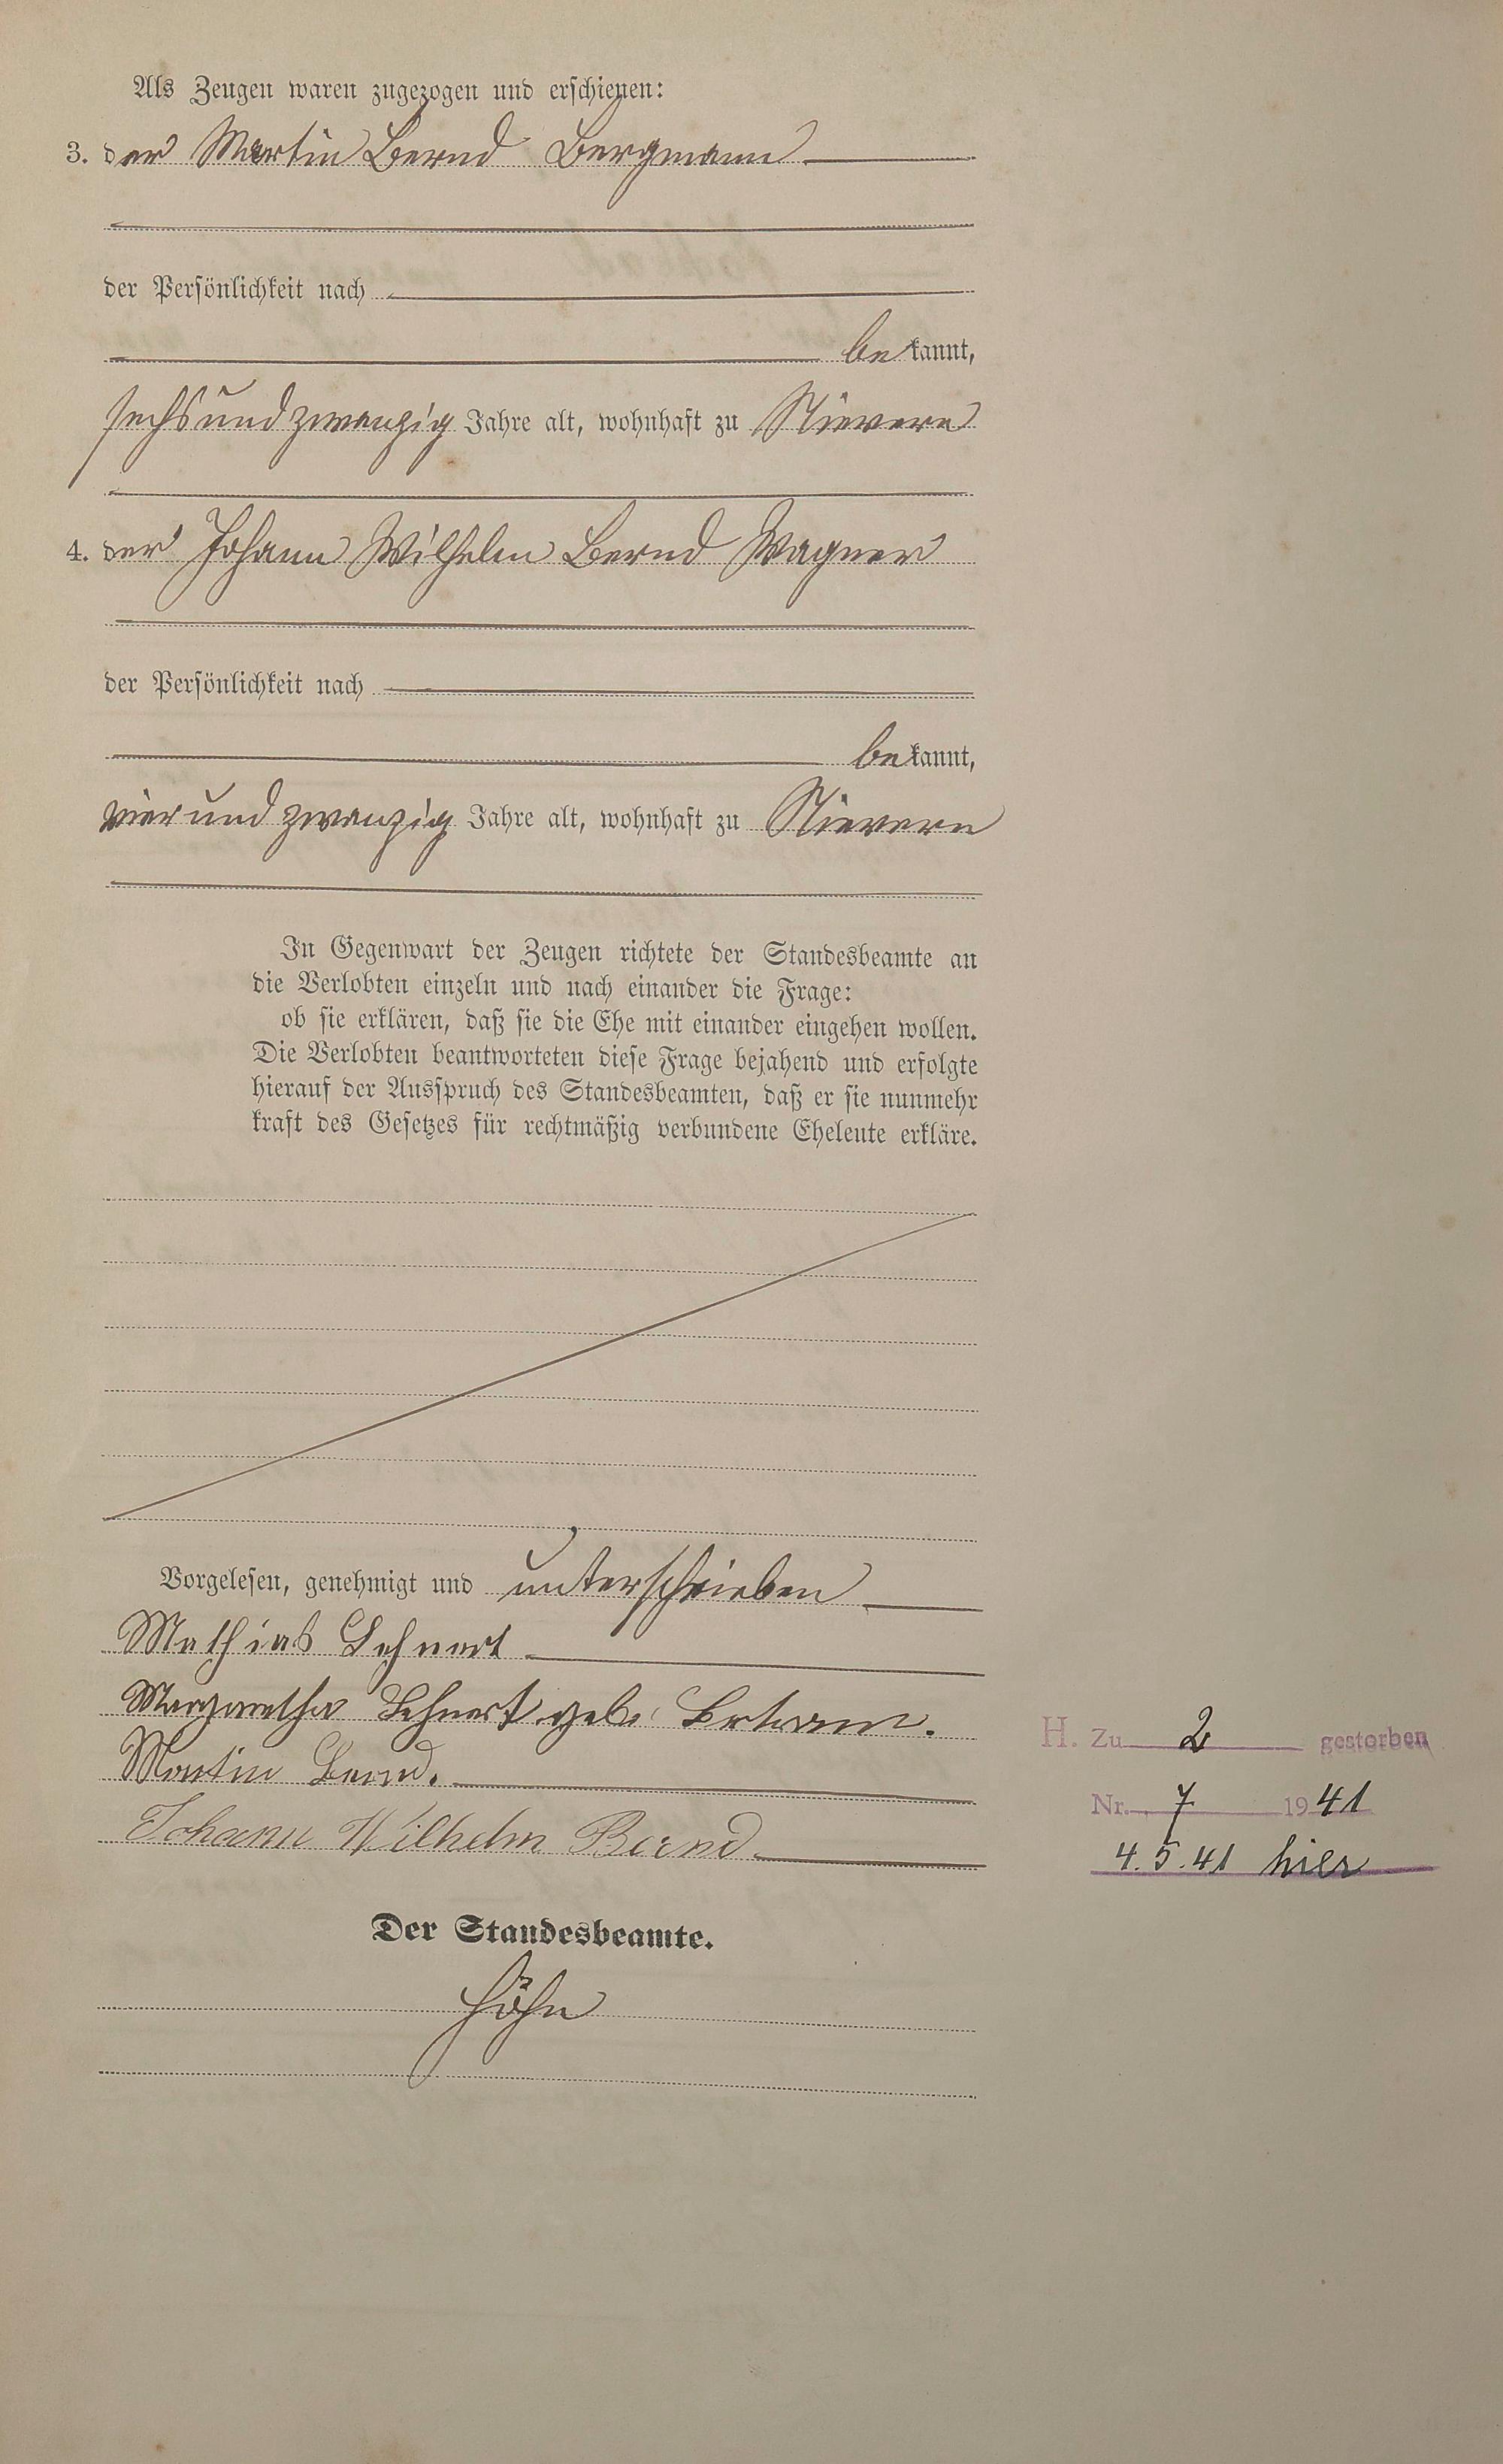 Als Zeugen waren zugezogen und erschienen:
3. der Martin Bernd Bergmann
der Persönlichkeit nach
bekannt,
sechsundzwanzig Jahre alt, wohnhaft zu Nievern
4. der Johann Wilhelm Bernd Wagner
der Persönlichkeit nach
bekannt,
vierundzwanzig Jahre alt, wohnhaft zu Nievern
In Gegenwart der Zeugen richtete der Standesbeamte an
die Verlobten einzeln und nach einander die Frage:
ob sie erklären, daß sie die Ehe mit einander eingehen wollen.
Die Verlobten beantworteten diese Frage bejahend und erfolgte
hierauf der Ausspruch des Standesbeamten, daß er sie nunmehr
kraft des Gesetzes für rechtmäßig verbundene Eheleute erkläre.
Vorgelesen, genehmigt und unterschrieben
Mathias Lehnert
Margaretha Lehnert geb.
Martin Bernd.
Johann Wilhelm Bernd
Der Standesbeamte.
Höhn
H. Zu 2 gestorben
Nr. 7 1941
4.5.41 hier